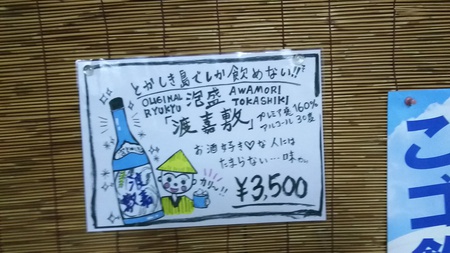 とかしき島でしか飲めない!!
OLIGINAL 泡盛 AWAMORI
RYUKYU TOKASHIKI
「渡嘉敷」 プレミア発 160%
アルコール 30度
お酒好き♡な人には
たまらない…味。
カリ〜!!
¥3,500
渡嘉敷